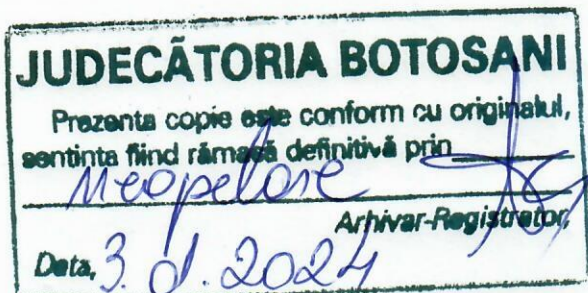 JUDECĂTORIA BOTOSANI
Prezenta copie este conform cu originalul,
sentinta fiind rămasă definitivă prin
neapelare
Arhivar-Registrator,
Data, 3. 2024